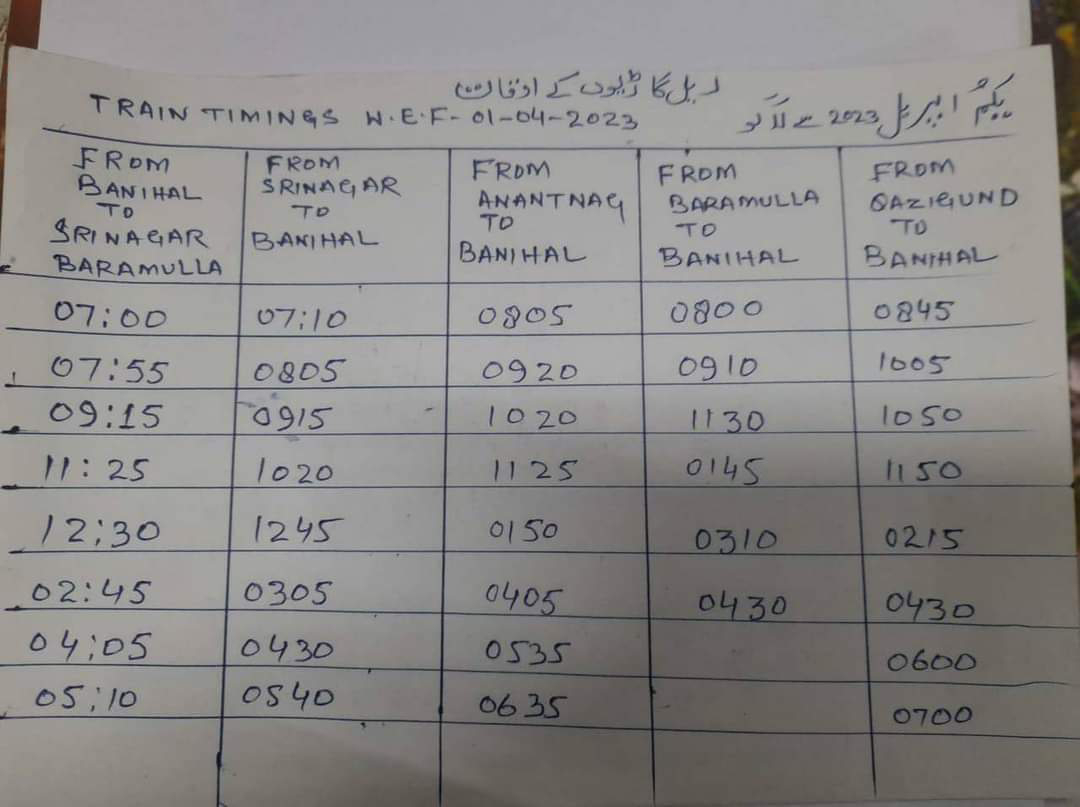 ریل گاڑیوں کے اوقات
TRAIN TIMINGS W.E.F-01-04-2023 یکم اپریل 2023 سے لاگو
FROM BANIHAL TO SRINAGAR BARAMULLA | FROM SRINAGAR TO BANIHAL | FROM ANANTNAG TO BANIHAL | FROM BARAMULLA TO BANIHAL | FROM QAZIGUND TO BANIHAL
07:00 07:10 0805 0800 0845
07:55 0805 0920 0910 1005
09:15 0915 1020 1130 1050
11:25 1020 1125 0145 1150
12:30 1245 0150 0310 0215
02:45 0305 0405 0430 0430
04:05 0430 0535 0600
05:10 0540 0635 0700